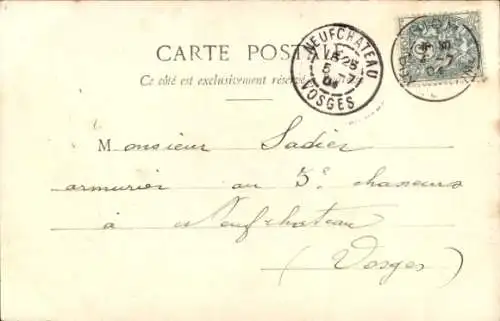 CARTE POST
Ce côté est exclusivement réservé
NEUFCHATEAU
VOSGES
Monsieur Sadier
armurier au 3e chaseurs
à Neufchateau
(Vosges)